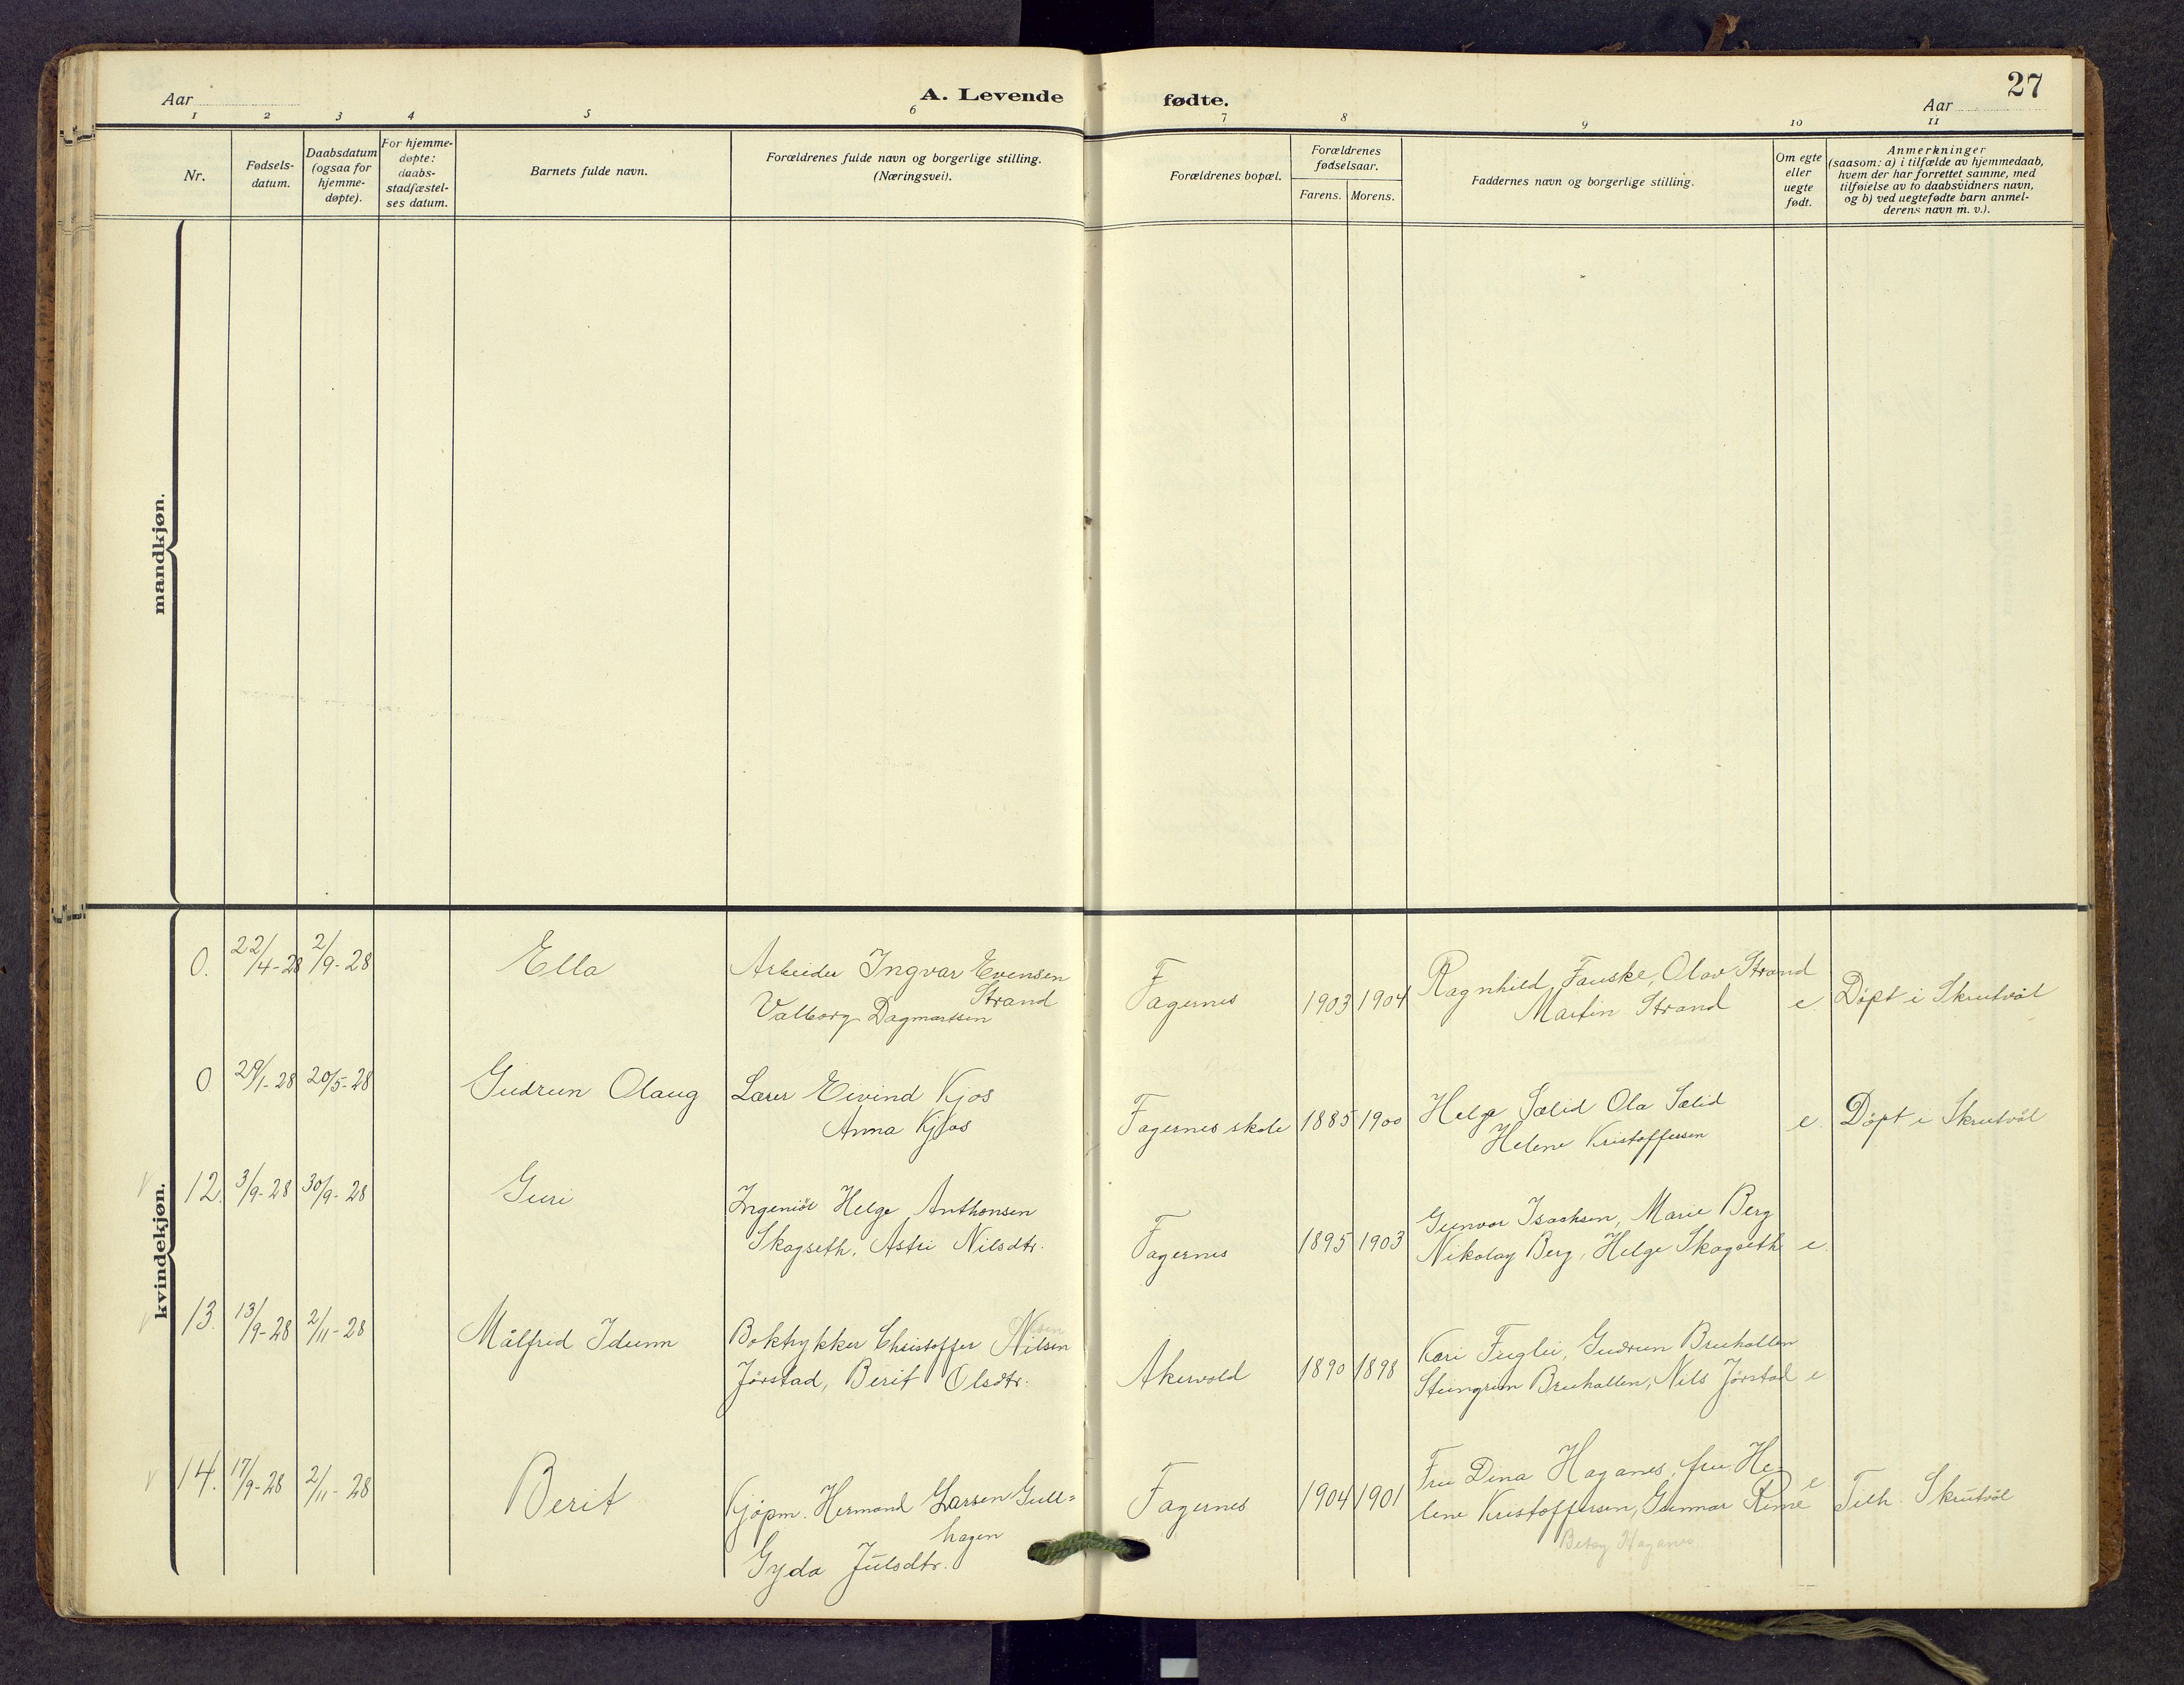 27
Aar
A. Levende
fødte.
Aar
1 2 3 4 5 6 7 8 9 10 11
Nr.
Fødsels-
datum.
Daabsdatum
(ogsaa for
hjemme-
døpte).
For hjemme-
døpte:
daabs-
stadfæstel-
ses datum.
Barnets fulde navn.
Forældrenes fulde navn og borgerlige stilling.
(Næringsvei).
Forældrenes bopæl.
Forældrenes
fødselsaar.
Farens. Morens.
Faddernes navn og borgerlige stilling.
Om egte
eller
uegte
født.
Anmerkninger
(saasom: a) i tilfælde av hjemmedaab,
hvem der har forrettet samme, med
tilføielse av to daabsvidners navn,
og b) ved uegtefødte barn anmel-
derens navn m. v.).
mandkjøn.
kvindekjøn.
0. 22/4-28 2/9-28 Ella
Arbeider Ingvar Evensen
Strand
Valborg Dagmartsen
Fagernes 1903 1904
Ragnhild Fauske, Olav Strand
Martin Strand
e. Döpt i Skrutvål
0 29/1-28 20/5-28 Gudrun Olaug
Lærer Eivind Kjos
Anna Kjos
Fagernes skole 1885 1900
Helga Sælid Ola Sælid
Helene Kristoffersen
e. Döpt i Skrutvål
12. 3/9-28 30/9-28 Guri
Ingeniör Helge Anthonsen
Skogseth, Astri Nilsdtr.
Fagernes 1895 1903
Gunvor Isachsen, Marie Berg
Nikolay Berg, Helge Skogseth e.
13. 13/9-28 2/11-28 Målfrid Idunn
Boktrykker Christoffer Nilsen
Jörstad, Berit Olsdtr.
Akervold 1890 1898
Kari Fuglei, Gudrun Bruhallen
Steingrim Bruhallen, Nils Jörstad e
14. 17/9-28 2/11-28 Berit
Kjöpm. Hermand Larsen Gull=
hagen
Gyda Julsdtr.
Fagernes 1904 1901
Fru Dina Haganes, fru He-
lene Kristoffersen, Gunnar Rime
Betsy Haganes
e Tilh. Skrutvål